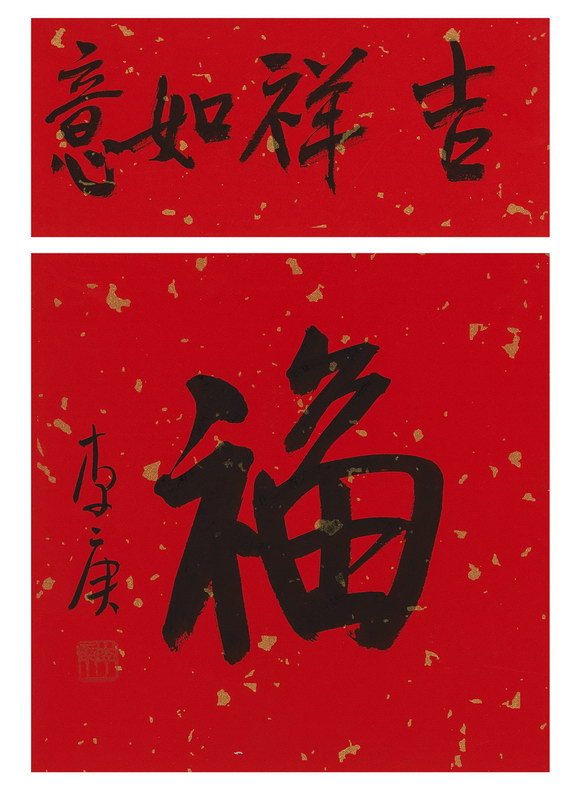 吉祥如意
福
李庚